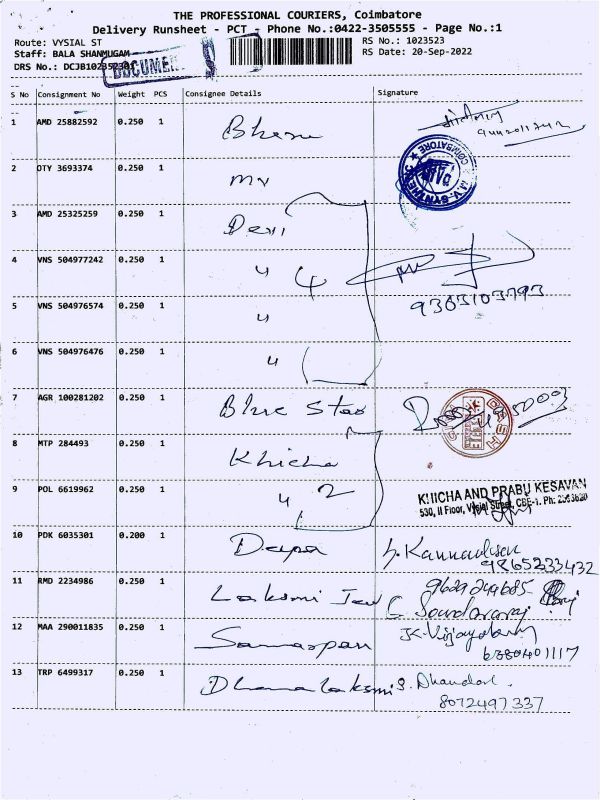 THE PROFESSIONAL COURIERS, Coimbatore
Delivery Runsheet - PCT - Phone No.:0422-3505555 - Page No.:1
Route: VYSIAL ST
RS No.: 1023523
Staff: BALA SHANMUGAM
RS Date: 20-Sep-2022
DRS No.:
DOCUMENTS
S No Consignment No Weight PCS Consignee Details Signature
1 AMD 25882592 0.250 1
2 OTY 3693374 0.250 1 mv
COIMBATORE
3 AMD 25325259 0.250 1 Devi
4 VNS 504977242 0.250 1 " 4
9363103793
5 VNS 504976574 0.250 1 "
6 VNS 504976476 0.250 1 "
7 AGR 100281202 0.250 1 Blue Star
8 MTP 284493 0.250 1 Khicha
9 POL 6619962 0.250 1 " 2
KHICHA AND PRABU KESAVAN
530, II Floor, Vysial Street, CBE-1. Ph:
10 PDK 6035301 0.200 1 Deepa
9865233432
11 RMD 2234986 0.250 1 Laksmi Jew
G Soundararaj
12 MAA 290011835 0.250 1 Samarpan
6380401117
13 TRP 6499317 0.250 1 Dhanalaksmi
8072497337